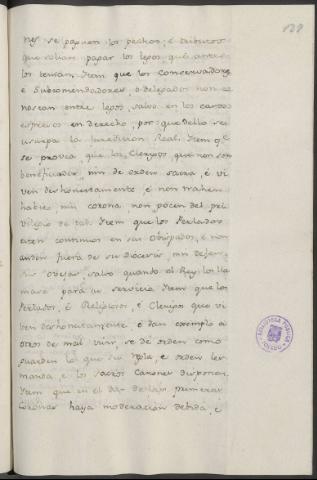 128
nes se paguen los pechos, e tributos
que solian pagar los legos, que antes
los tenian. Item que los conservadores
e Subcomendadores, o delegados non co
noscan entre legos, salvo en los casos
expresos en derecho, por que dello se
usurpa la Jurediccion Real. Item q.e
se provea que los Clerigos que non son
beneficiados, nin de orden sacra, é vi
ven deshonestamente, é non trahen
habito nin corona, non gocen del pri
vilegio de tal. Item que los Perlados
esten continuos en sus Obispados, e non
anden fuera de su diocesis, nin dejen
sus ovejas, salvo quando el Rey los lla
mare para su servicio. Item que los
Perlados, é Religiosos, é Clerigos que vi
ven deshonestamente, é dan exemplo á
otros de mal vivir, se dé orden como
guarden lo que su regla, e orden les
manda, e los sacros Canones disponen.
Item que en el dar de las primeras
coronas haya moderacion debida, e